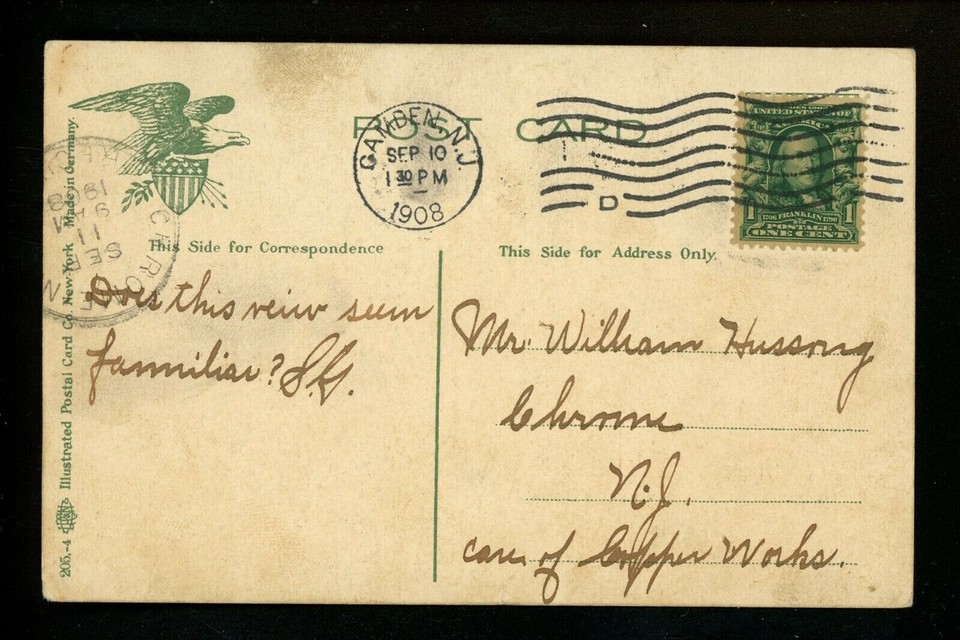 POST CARD
CAMDEN, N.J.
SEP 10
1 30 PM
1908
D
UNITED STATES OF
AMERICA
1 1706 FRANKLIN 1790 1
POSTAGE
ONE CENT
CHROME
N
SEP
11
9 AM
1908
This Side for Correspondence
This Side for Address Only.
Does this veiw seem
familiar? S.G.
Mr. William Hussong
Chrome
N.J.
care of Copper Works.
205.-4 Illustrated Postal Card Co. New-York Made in Germany.